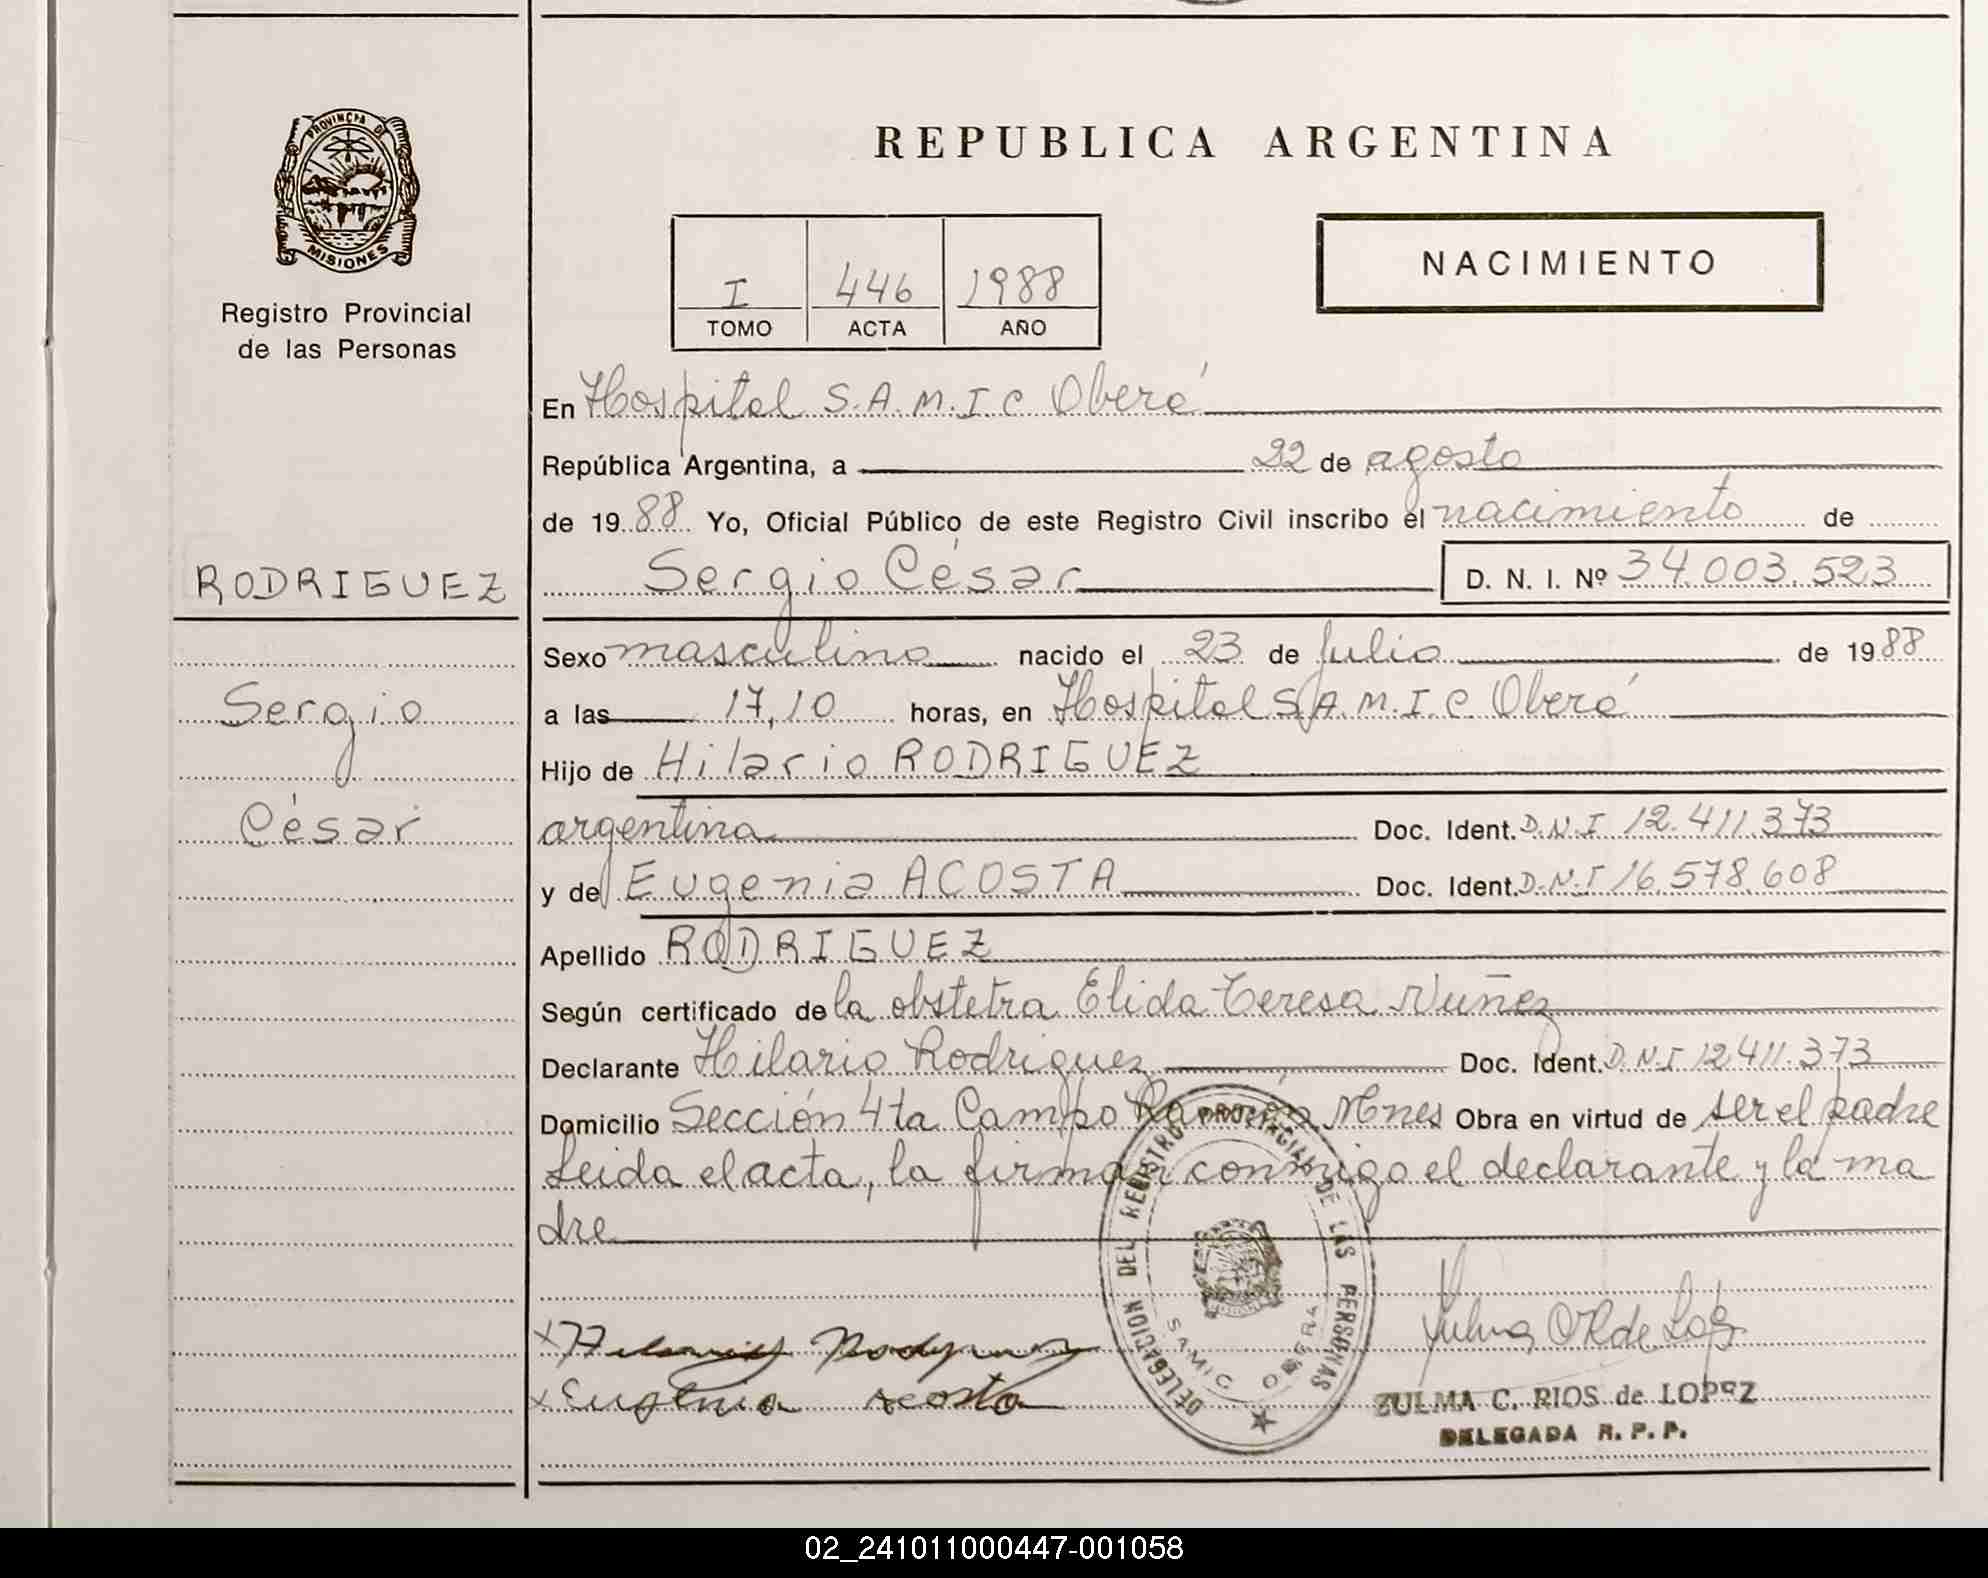 PROVINCIA DE
MISIONES
Registro Provincial
de las Personas
RODRIGUEZ
Sergio
César
REPUBLICA ARGENTINA
I 446 1988
TOMO ACTA AÑO
NACIMIENTO
En Hospital S.A.M.I.C Oberá
República Argentina, a 22 de agosto
de 1988 Yo, Oficial Público de este Registro Civil inscribo el nacimiento de
Sergio César D. N. I. Nº 34.003.523
Sexo masculino nacido el 23 de Julio de 1988
a las 17,10 horas, en Hospital S.A.M.I.C. Oberá
Hijo de Hilario RODRIGUEZ
argentina Doc. Ident. D.N.I 12.411.373
y de Eugenia ACOSTA Doc. Ident. D.N.I 16.578.608
Apellido RODRIGUEZ
Según certificado de la obstetra Elida Teresa Nuñez
Declarante Hilario Rodriguez Doc. Ident. D.N.I 12.411.373
Domicilio Sección 4ta Campo Ramón Mnes Obra en virtud de ser el padre
Leida el acta, la firman conmigo el declarante y la ma
dre
DELEGACION DEL REGISTRO PROVINCIAL DE LAS PERSONAS
SAMIC OBERA
x Hilario Rodriguez
x Eugenia Acosta
ZULMA C. RIOS de LOPEZ
DELEGADA R. P. P.
02_241011000447-001058